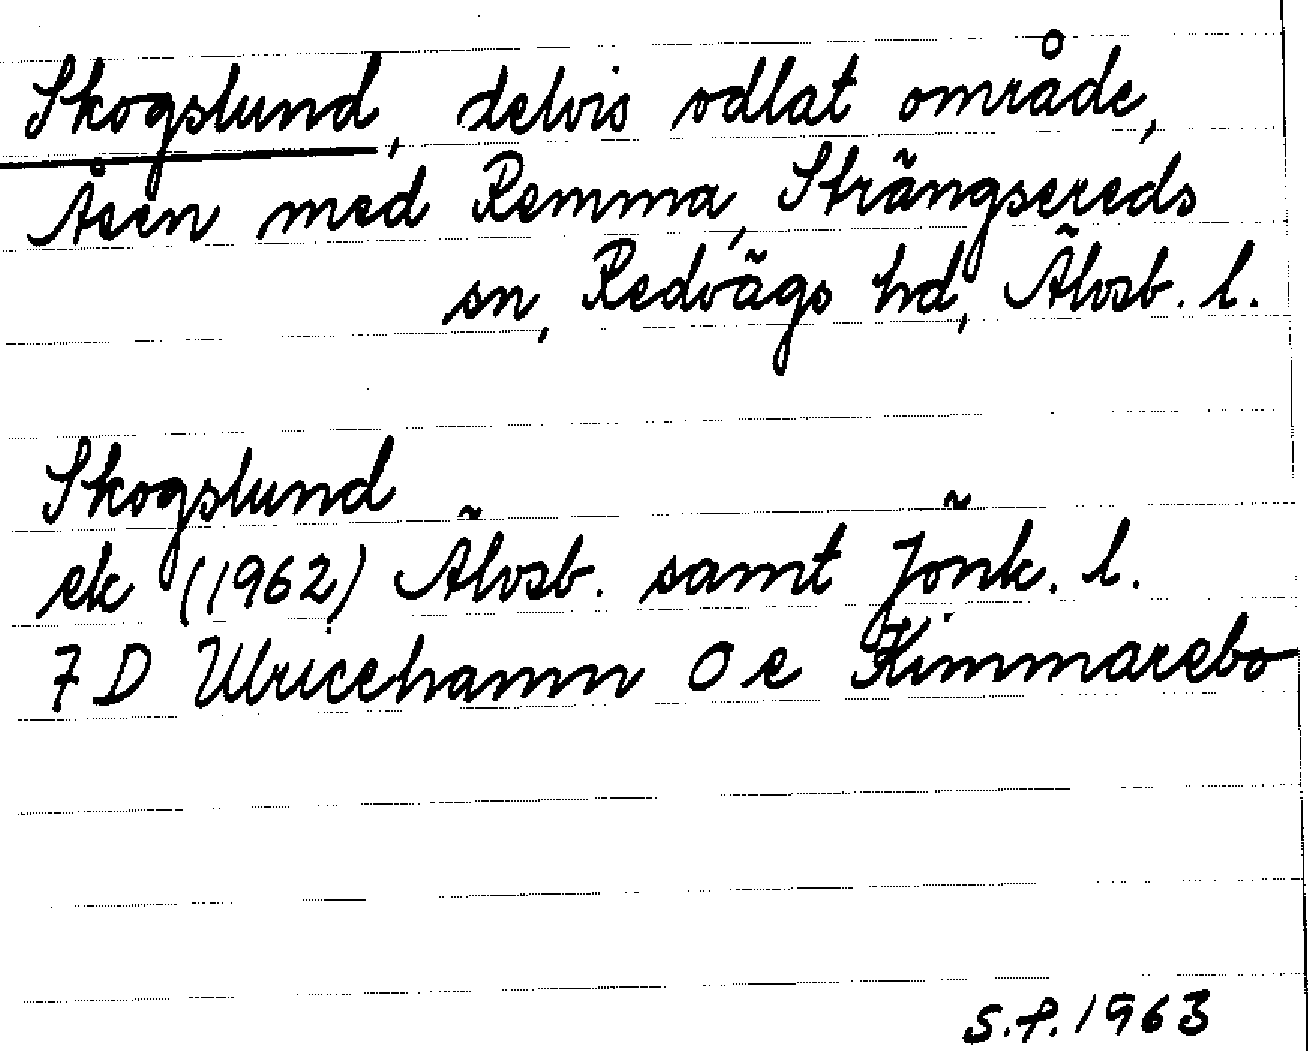 Skogslund, delvis odlat område,
Åsen med Remma, Strängsereds
sn, Redvägs hd, Älvsb. l.
Skogslund
ek (1962) Älvsb. samt Jönk. l.
7 D Ulricehamn O e Kimmarebo
S.F. 1963